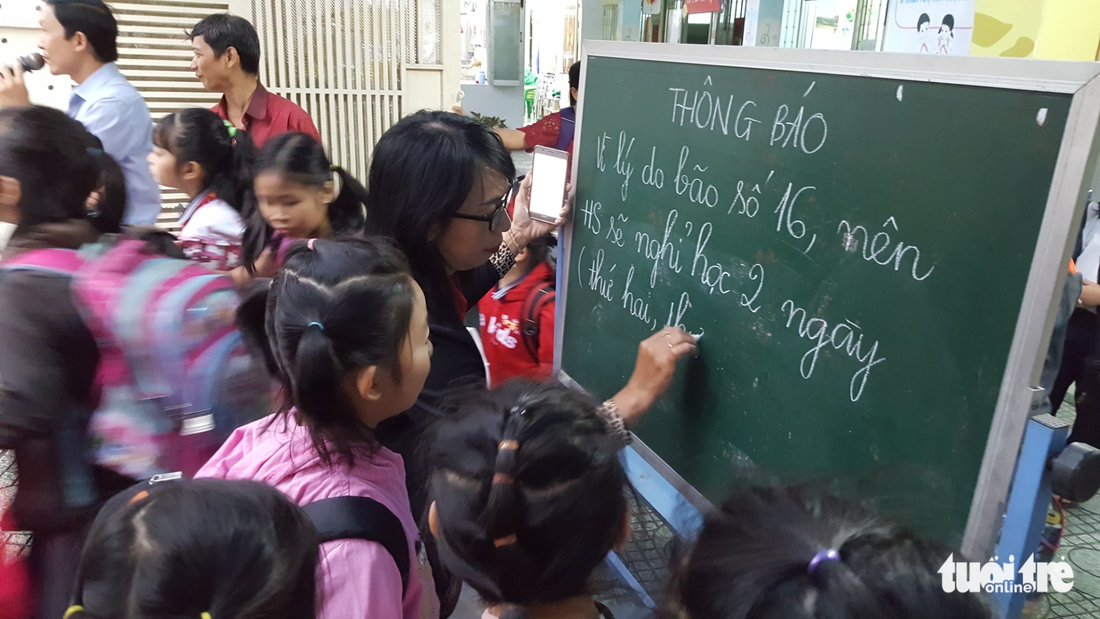 THÔNG BÁO
Vì lý do bão số 16, nên
HS sẽ nghỉ học 2 ngày
(thứ hai, th
kids
tuổi trẻ
online